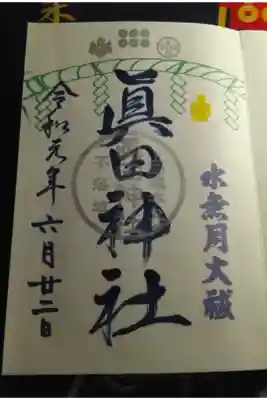 水無月大祓
眞田神社
令和元年六月廿二日